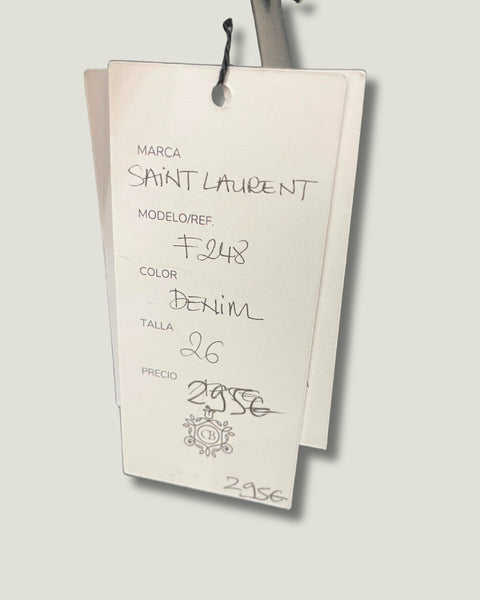 MARCA
SAINT LAURENT
MODELO/REF.
F248
COLOR
DENIM
TALLA
26
PRECIO
295€
CB
295€